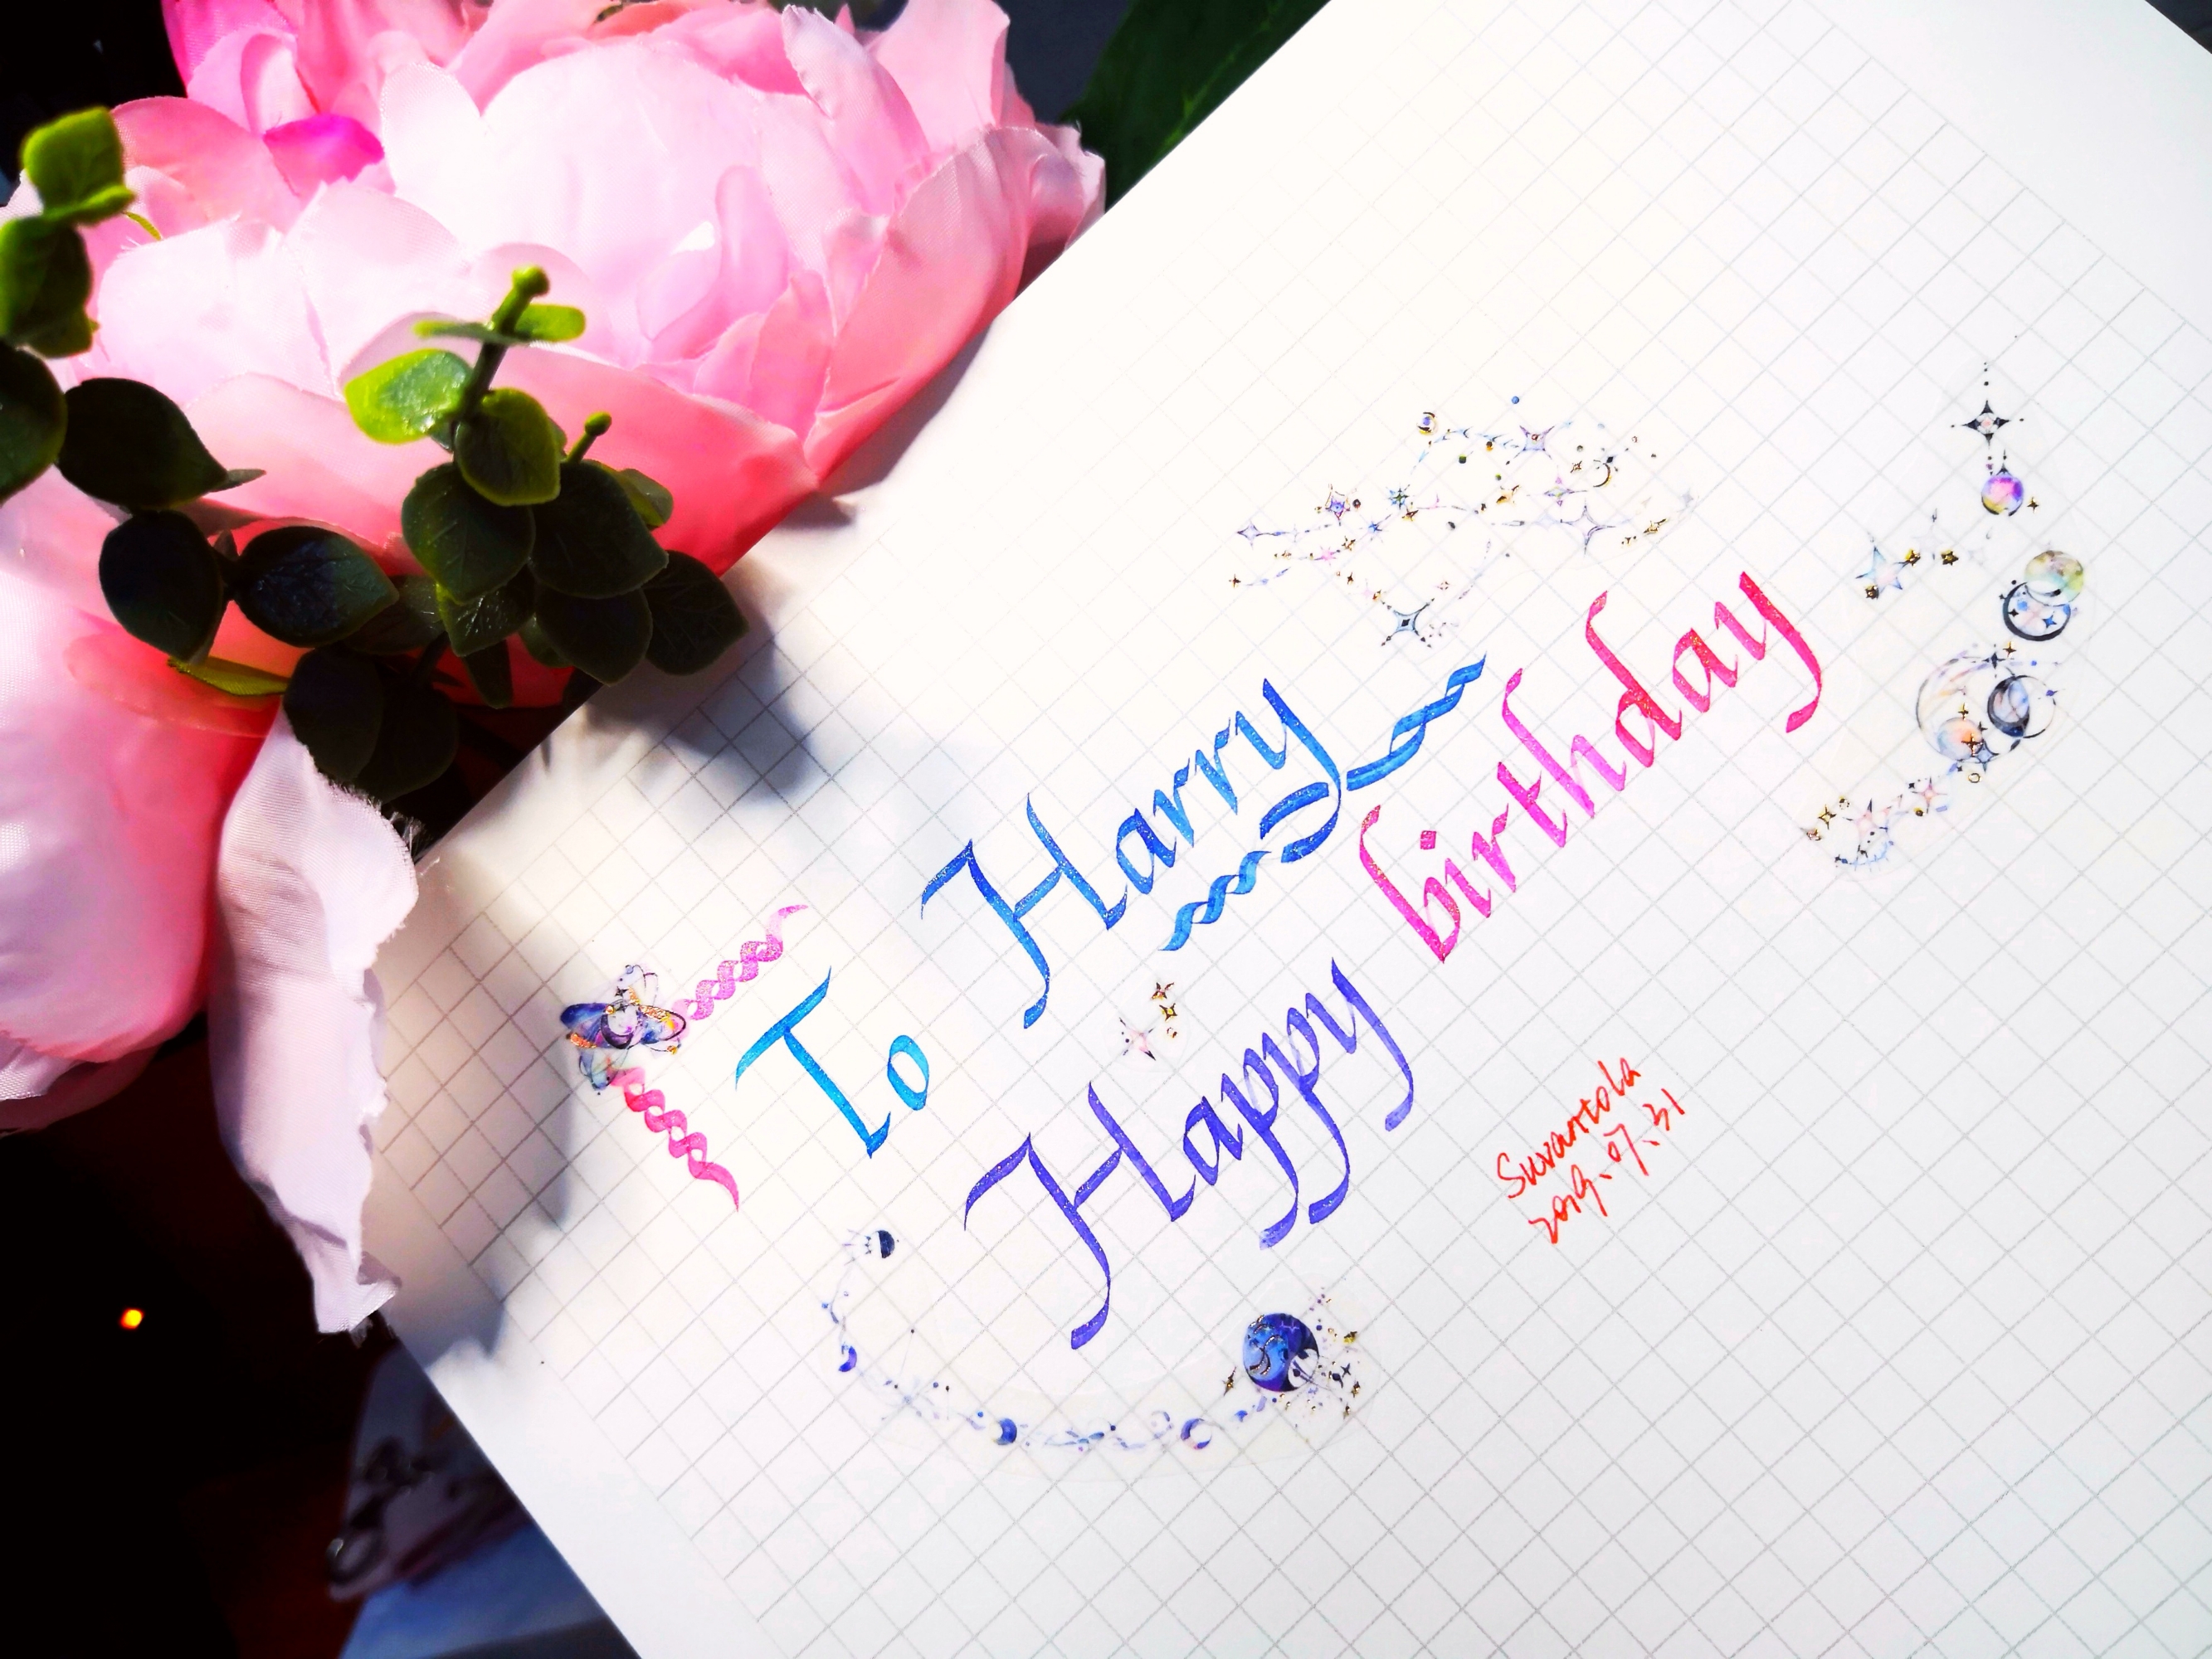 To Harry
Happy birthday
Suvartola
2019.07.31